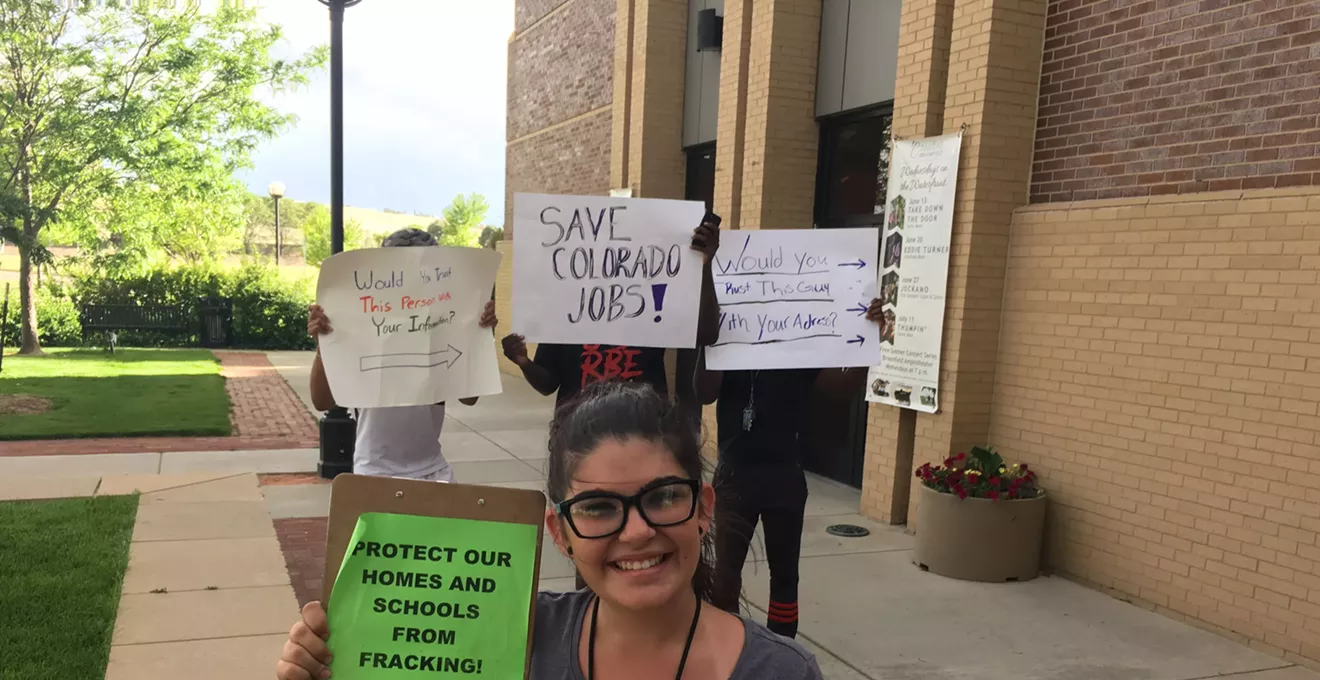 Would You Trust
This Person With
Your Information?
SAVE
COLORADO
JOBS!
Would you
Trust This Guy
With Your Adress?
RBE
PROTECT OUR
HOMES AND
SCHOOLS
FROM
FRACKING!
Wednesdays on
the Waterfront
June 13
TAKE DOWN
THE DOOR
June 20
EDDIE TURNER
June 27
JOCKAMO
July 11
THUMPIN'
Free Summer Concert Series
Broomfield Amphitheater